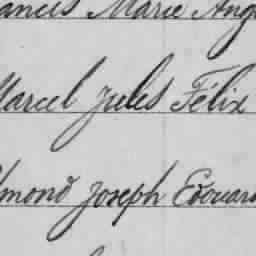 ancis Marie Ang
Marcel Jules Félix
dmond Joseph Edouard